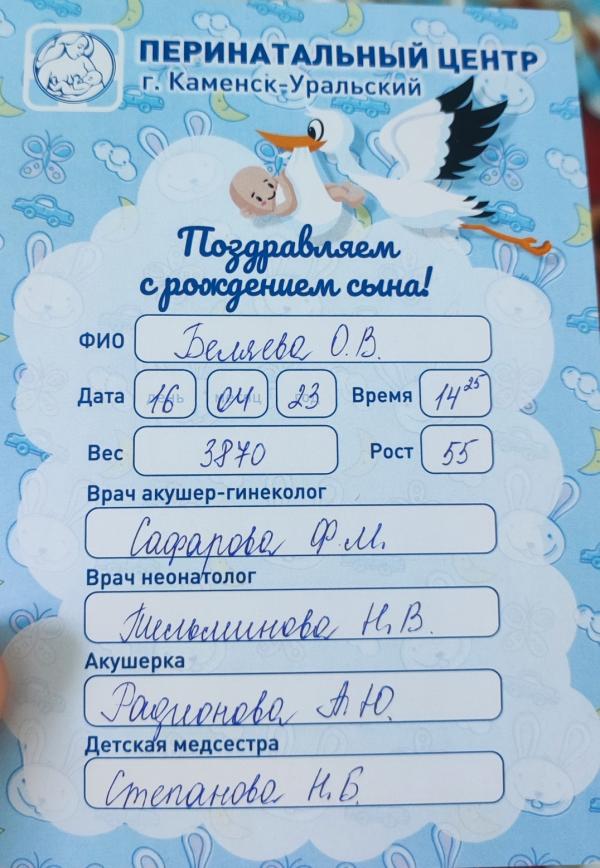 ПЕРИНАТАЛЬНЫЙ ЦЕНТР
г. Каменск-Уральский
Поздравляем
с рождением сына!
ФИО Беляева О.В.
Дата 16 04 23 Время 14 25
Вес 3870 Рост 55
Врач акушер-гинеколог
Сафарова Ф.М.
Врач неонатолог
Тельминова Н.В.
Акушерка
Радионова А.Ю.
Детская медсестра
Степанова Н.Б.